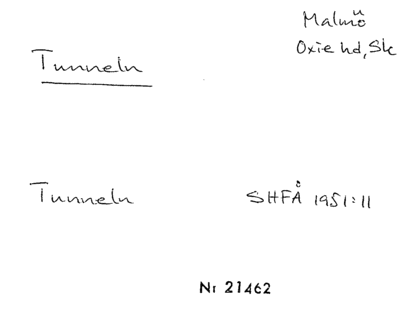 Malmö
Oxie hd, Sk
Tunneln
Tunneln
SHFÅ 1951:11
Nr 21462